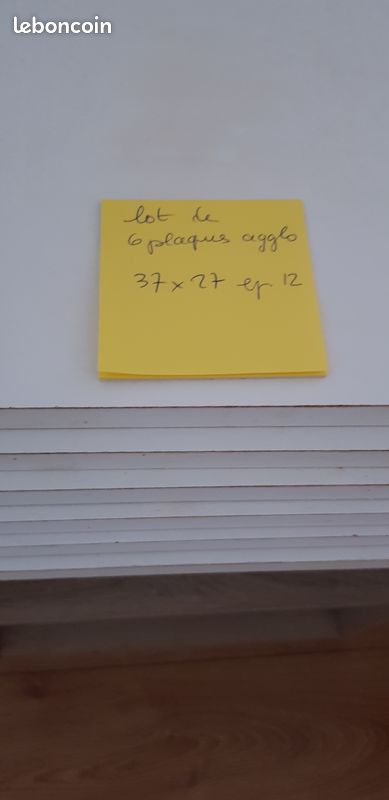 leboncoin
lot de
6 plaques agglo
37 x 27 ep. 12